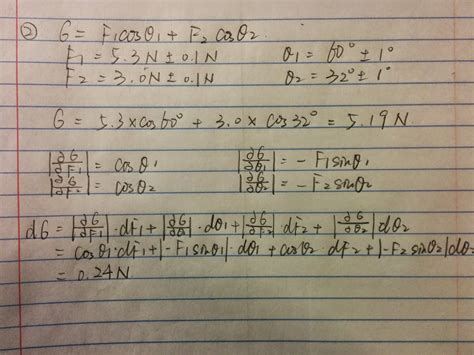 ② G = F₁cosθ₁ + F₂ cosθ₂.
F₁ = 5.3 N ± 0.1 N θ₁ = 60° ± 1°
F₂ = 3.0 N ± 0.1 N θ₂ = 32° ± 1°
G = 5.3 × cos 60° + 3.0 × cos 32° = 5.19 N
|∂G/∂F₁| = cosθ₁ |∂G/∂θ₁| = - F₁ sinθ₁
|∂G/∂F₂| = cosθ₂ |∂G/∂θ₂| = - F₂ sinθ₂
dG = |∂G/∂F₁| · dF₁ + |∂G/∂θ₁| · dθ₁ + |∂G/∂F₂| dF₂ + |∂G/∂θ₂| dθ₂
= cosθ₁ · dF₁ + |-F₁ sinθ₁| · dθ₁ + cosθ₂ · dF₂ + |-F₂ sinθ₂| dθ₂
= 0.24 N